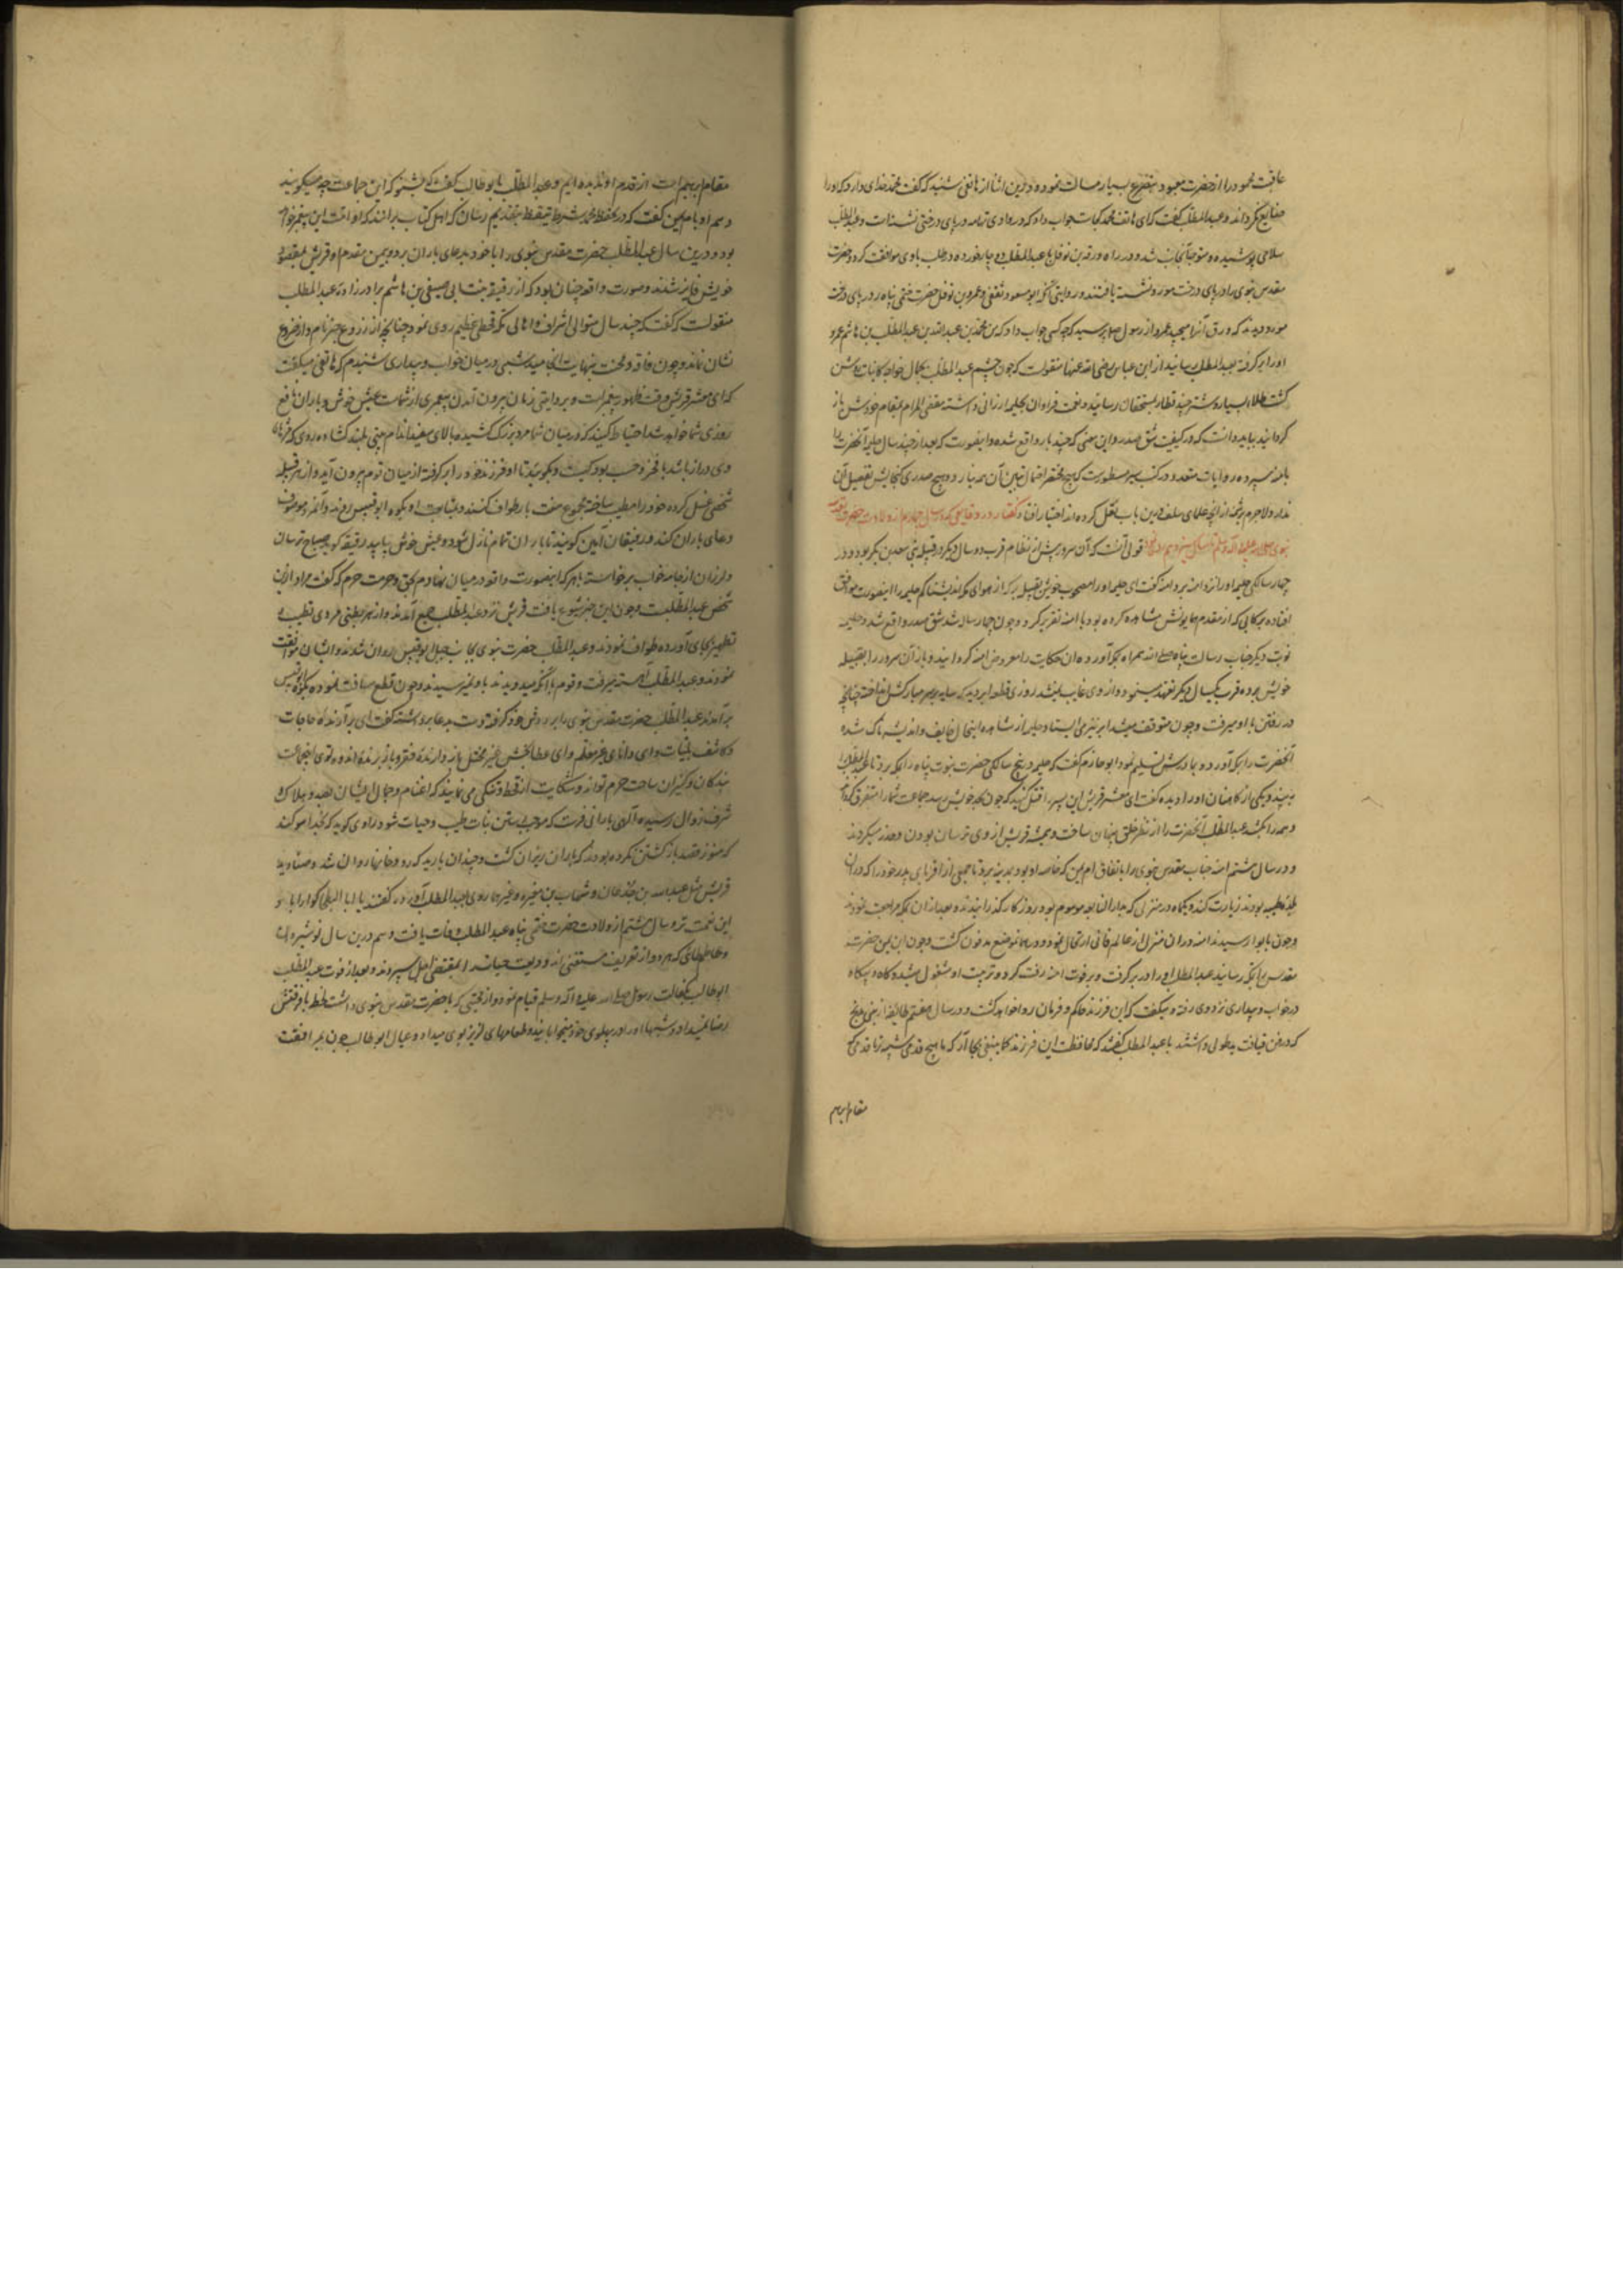 عاقبت محمود را از حضرت معبود بتضرع بسیار مسالت نموده درین اثنا از هاتفی شنید که گفت محمد خدای دارد که او را
ضایع نگرداند و عبدالمطلب گفت که ای هاتف محمد کجاست جواب داد که در وادی تهامه در پای درختی نشسته است و عبدالمطلب
سلاحی پوشیده و متوجه آنجانب شد و در راه ورقه بن نوفل با عبدالمطلب دوچار خورده در طلب با وی موافقت کرد و حضرت
مقدس نبوی را در پای درخت موز نشسته یافتند و روایتی آنکه ابو مسعود ثقفی و عمرو بن نوفل حضرت ختمی پناه را در پای درخت
موز دیدند که ورق آنرا میچید عمرو از رسول پرسید که چه کسی جواب داد که من محمد بن عبدالله بن عبدالمطلب بن هاشم عمرو
او را بر گرفته بعبدالمطلب رسانید از ابن عباس رضی الله عنهما منقولست که چون چشم عبدالمطلب بجمال خواجه کاینات روشن
گشت طلاء بسیار و شتر چند قطار بمستحقان رسانید و نعمت فراوان بحلیمه ارزانی داشته مقضی المرام بمقام خودش باز
گردانید بباید دانست که در کیفیت شق صدر و این معنی که چند بار واقع شده و اینصورت که بعد از چند سال حلیمه آنحضرت را
بامنه سپرده روایات متعدد در کتب سیر مسطورست که هیچ مختصر احتمال تبیین آن همه نیارد و هیچ صدری گنجایش تفصیل آن
ندارد لاجرم برشمهٔ از آنچه علمای سلف درین باب نقل کرده اند اختیار افتاد گفتار در وقایعی که در سال چهارم از ولادت حضرت مقدس
نبوی صلی الله علیه و آله وسلم تا سال سیزدهم قولی آنست که آن سرور پیش از فطام قرب دو سال دیگر در قبیله بنی سعد بن بکر بود و در
چهار سالگی حلیمه او را نزد آمنه برد و آمنه گفت ای حلیمه او را مصحوب خویش بقبیله بر که از هوای مکه اندیشناکم حلیمه را اینصورت موافق
افتاده برکاتی که از مقدم همایونش مشاهده کرده بود با آمنه تقریر کرد و چون چهار ساله شد شق صدر واقع شد و حلیمه
نوبت دیگر جناب رسالت پناه صلی الله همراه بمکه آورده آن حکایت را معروض آمنه گردانید و باز آن سرور را بقبیله
خویش برده قرب یکسال دیگر تعهد مینمود و از وی غایب نمیشد روزی قطعه ابر دید که سایه بر سر مبارکش انداخته چنانچه
در رفتن با او میرفت و چون متوقف میشد ابر نیز می ایستاد و حلیمه از مشاهده اینحال خایف و اندیشه ناک شده
آنحضرت را بمکه آورده بمادرش تسلیم نمود ابو حازم گفت که حلیمه در پنج سالگی حضرت نبوت پناه را بمکه برد تا عبدالمطلب را
ببیند و یکی از کاهنان او را دیده گفت ای معشر قریش این پسر را قتل کنید که چون بحد خویش رسد جماعت شما را متفرق گرداند
و همه را بکشد عبدالمطلب آنحضرت را از نظر خلق پنهان ساخت و همیشه قریش از وی ترسان بودن و حذر میکردند
و در سال ششم آمنه جناب مقدس نبوی را باتفاق ام ایمن که خاصه او بود بمدینه برد تا جمعی از اقربای پدر خود را که در آن
بلده طیبه بودند زیارت کند و یکماه در منزلی که بدار النابغه موسوم بود روزگار گذرانیدند و بعد از آن بمکه مراجعت نمودند
و چون بابوا رسیدند آمنه در آن منزل از عالم فانی ارتحال نمود و در همان موضع مدفون گشت و چون ام ایمن حضرت
مقدس را بمکه رسانید عبدالمطلب او را در بر گرفت و بر فوت آمنه رقت کرد و تربیت او مشغول میشد و گاه و بیگاه
در خواب و بیداری نزد وی رفته و میگفت که این فرزند حاکم و فرمان روا خواهد گشت و در سال هفتم طایفه از بنی مدلج
که در فن قیافت ید طولی داشتند با عبدالمطلب گفتند که محافظت این فرزند کما ینبغی بجا آر که ما هیچ قدمی شبیه تر با قدمی که
مقام ابراهیم
مقام ابراهیم است از قدم او ندیده ایم و عبدالمطلب با بو طالب گفت که بشنو که این جماعت چه میگویند
و هم او با ام ایمن گفت که در حفظ محمد شرط تیقظ بتقدیم رسان که اهل کتاب برانند که او امت این پیغمبر خواهد
بود و درین سال عبدالمطلب حضرت مقدس نبوی را با خود بدعای باران برد و بیمن مقدم او قریش بمقصود
خویش فایز شدند و صورت واقعه چنان بود که از رقیقه بنت ابی صیفی بن هاشم برادر زاده عبدالمطلب
منقولست که گفت که چند سال متوالی اشراف و اهالی مکه قحطی عظیم روی نمود چنانچه از زروع جز نام و از ضروع
نشان نماند و چون فاقه و محنت بنهایت انجامید شبی در میان خواب و بیداری شنیدم که هاتفی میگفت
که ای معشر قریش وقت ظهور پیغمبرست و بروایتی زمان بیرون آمدن پیغمبری از شماست عیش خوش و باران نافع
روزی شما خواهد شد احتیاط کنید که در میان شما مرد بزرگ کشیده بالای سفید اندام بینی بلند گشاده روی که مژهای
وی دراز باشد با فخر و حسب بود کیست و بگویید تا او فرزند خود را بر گرفته از میان قوم بیرون آید و از هر قبیله
شخصی غسل کرده خود را مطیب ساخته مجموع هفت بار طواف کنند و بمتابعت او بکوه ابو قبیس روند و آنمرد موصوف
دعای باران کند و رفیقان آمین گویند تا باران تمام نازل شود و عیش خوش بیابید رقیقه گوید صباح ترسان
و لرزان از جامه خواب برخاسته با هر که اینصورت واقعه در میان نهادم بحق و حرمت حرم که گفت مراد ازین
شخص عبدالمطلبست و چون این خبر شیوع یافت قریش نزد عبدالمطلب جمع آمدند و از هر بطنی مردی تطیب و
تطهیر بجای آورده طواف نمودند و عبدالمطلب حضرت نبوی بجانب جبل ابو قبیس روان شدند و ایشان موافقت
نمودند و عبدالمطلب آهسته میرفت و قوم با آنکه میدویدند باو نمیرسیدند و چون قطع مسافت نموده بکوه ابو قبیس
بر آمدند عبدالمطلب حضرت مقدس نبوی را بر دوش خود گرفته دست بدعا برداشته گفت ای برآرنده حاجات
و کاشف بلیات و ای دانای غیر معلم و ای عطا بخش غیر مبخل باز دارنده فقر و باز برنده اندوه توی اینجماعت
بندگان و کنیزان ساحت حرم تواند و شکایت از قحط و تنگی می نمایند که اغنام و جمال ایشان بصدد هلاک
شرف زوال رسیده الهی بارانی فرست که موجب رستن نبات طیب و حیات شود راوی گوید که بخدا سوگند
که هنوز قصد باز گشتن نکرده بودند که باران ریزان گشت و چندان بارید که رودخانها روان شد و صنادید
قریش مثل عبدالله بن جدعان و شهاب بن مغیره و غیرهما روی بعبدالمطلب آورده گفتند یا ابا البطحا گوارا باد
این نعمت ترا و سال هشتم از ولادت حضرت ختمی پناه عبدالمطلب وفات یافت و هم درین سال نوشیروان
و حاتم طائی که هر دو از تعریف مستغنی اند ودیعت حیات را بمقتضی اجل سپردند و بعد از فوت عبدالمطلب
ابو طالب بکفالت رسول صلی الله علیه و آله وسلم قیام نمود و از محبتی که با حضرت مقدس نبوی داشت لحظه باو فرقتش
رضا نمیداد و شبها او را در پهلوی خود میخوابانید و طعامهای لذیذ بوی میداد و عیال ابو طالب چون بمرافقت